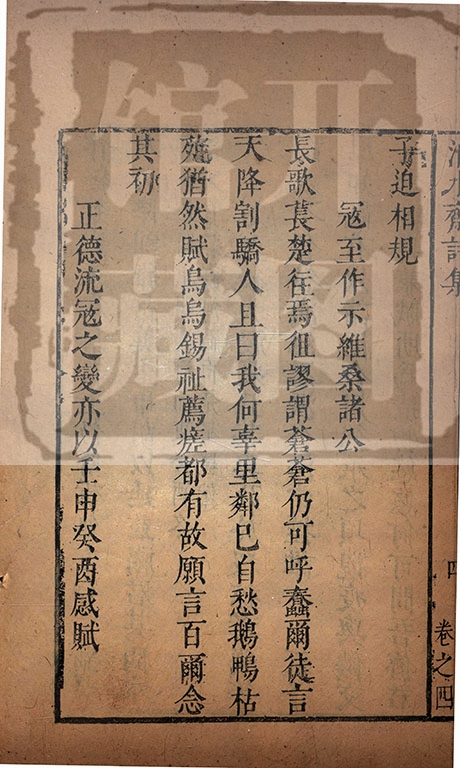 子迫相規
冦至作示維桑諸公
長歌萇楚往焉徂謬謂蒼蒼仍可呼蠢爾徒言
天降割驕人且曰我何辜里鄰已自愁鵝鴨枯
菀猶然賦烏烏錫祉薦瘥都有故願言百爾念
其初
正德流冦之變亦以壬申癸酉感賦
卷之四
四